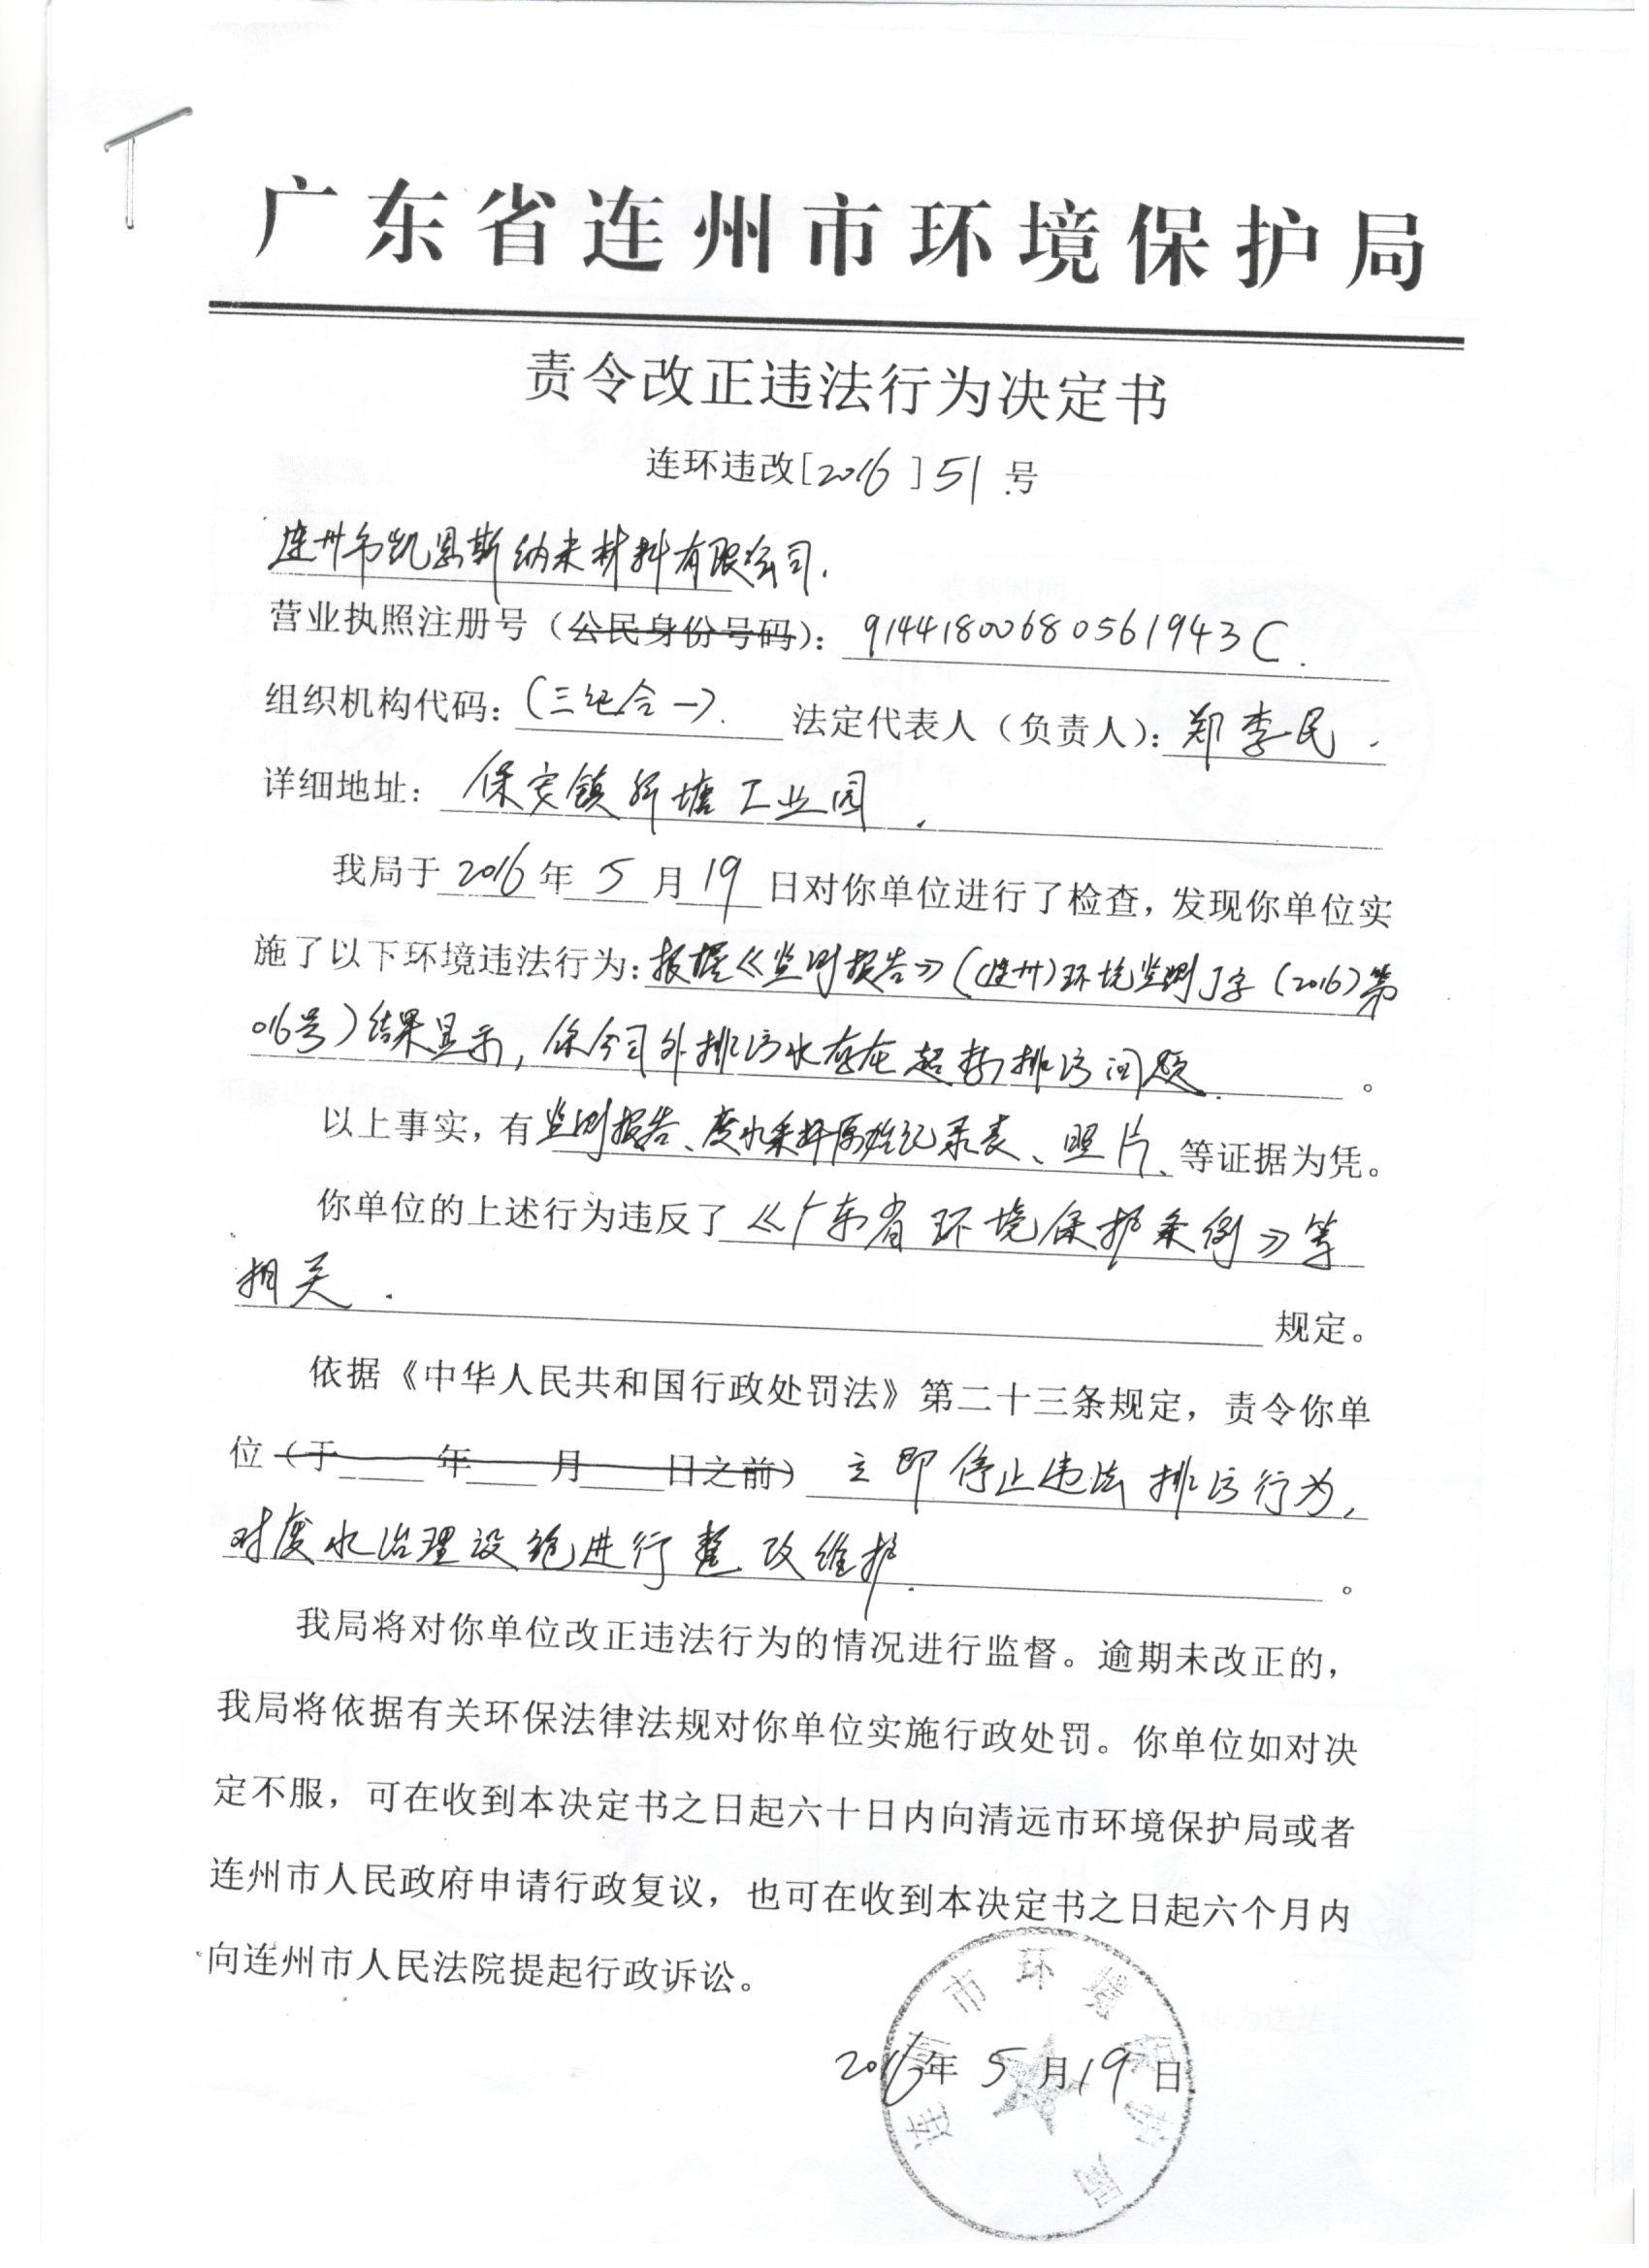 广东省连州市环境保护局
责令改正违法行为决定书
连环违改[2016]51号
连州市凯恩斯纳米材料有限公司.
营业执照注册号（公民身份号码）：91441800680561943C.
组织机构代码：(三证合一). 法定代表人（负责人）：郑李民.
详细地址：保安镇 工业园.
我局于2016年5月19日对你单位进行了检查，发现你单位实
施了以下环境违法行为：根据《监测报告》(（连州）环境监测J字（2016）第
016号)结果显示，你公司外排污水存在超标排污问题.。
以上事实，有监测报告、废水采样原始记录表、照片、等证据为凭。
你单位的上述行为违反了《广东省环境保护条例》等
相关.规定。
依据《中华人民共和国行政处罚法》第二十三条规定，责令你单
位（于 年 月 日之前）立即停止违法排污行为，
对废水治理设施进行整改维护.。
我局将对你单位改正违法行为的情况进行监督。逾期未改正的，
我局将依据有关环保法律法规对你单位实施行政处罚。你单位如对决
定不服，可在收到本决定书之日起六十日内向清远市环境保护局或者
连州市人民政府申请行政复议，也可在收到本决定书之日起六个月内
向连州市人民法院提起行政诉讼。
2016年5月19日
连州市环境保护局